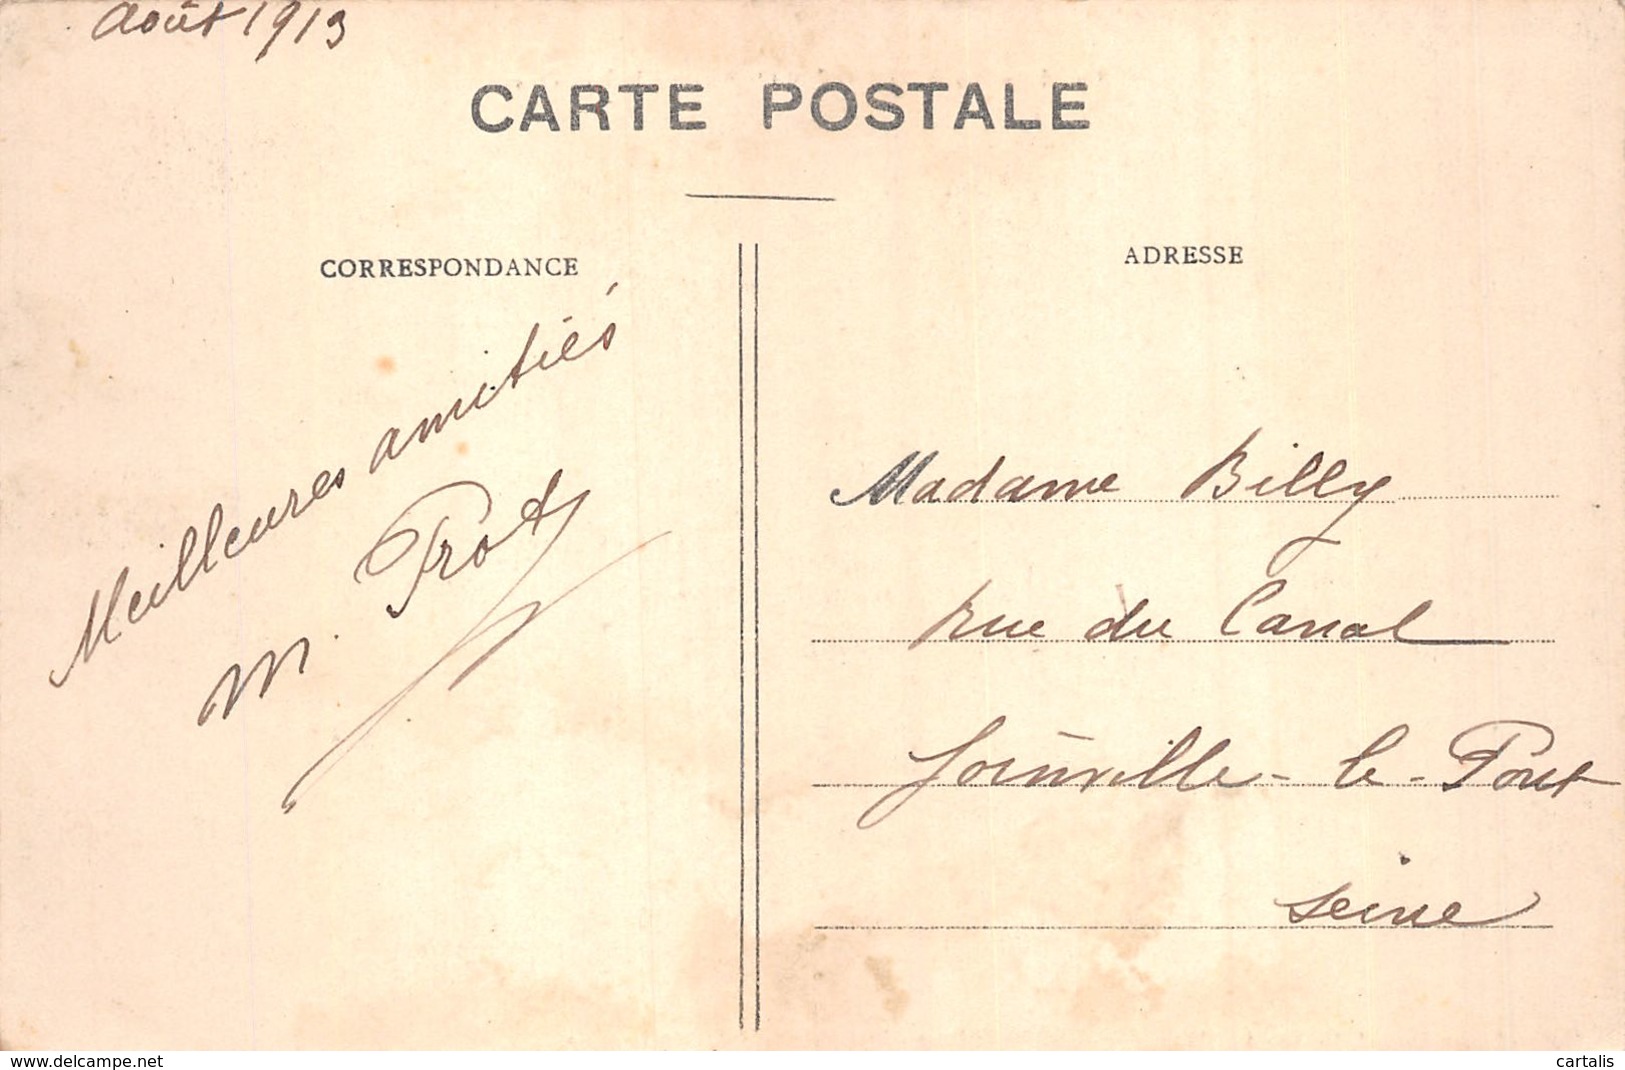 Août 1913
CARTE POSTALE
CORRESPONDANCE
Meilleures amitiés
M. Prot
ADRESSE
Madame Billy
rue du Canal
Joinville-le-Pont
Seine
www.delcampe.net
cartalis